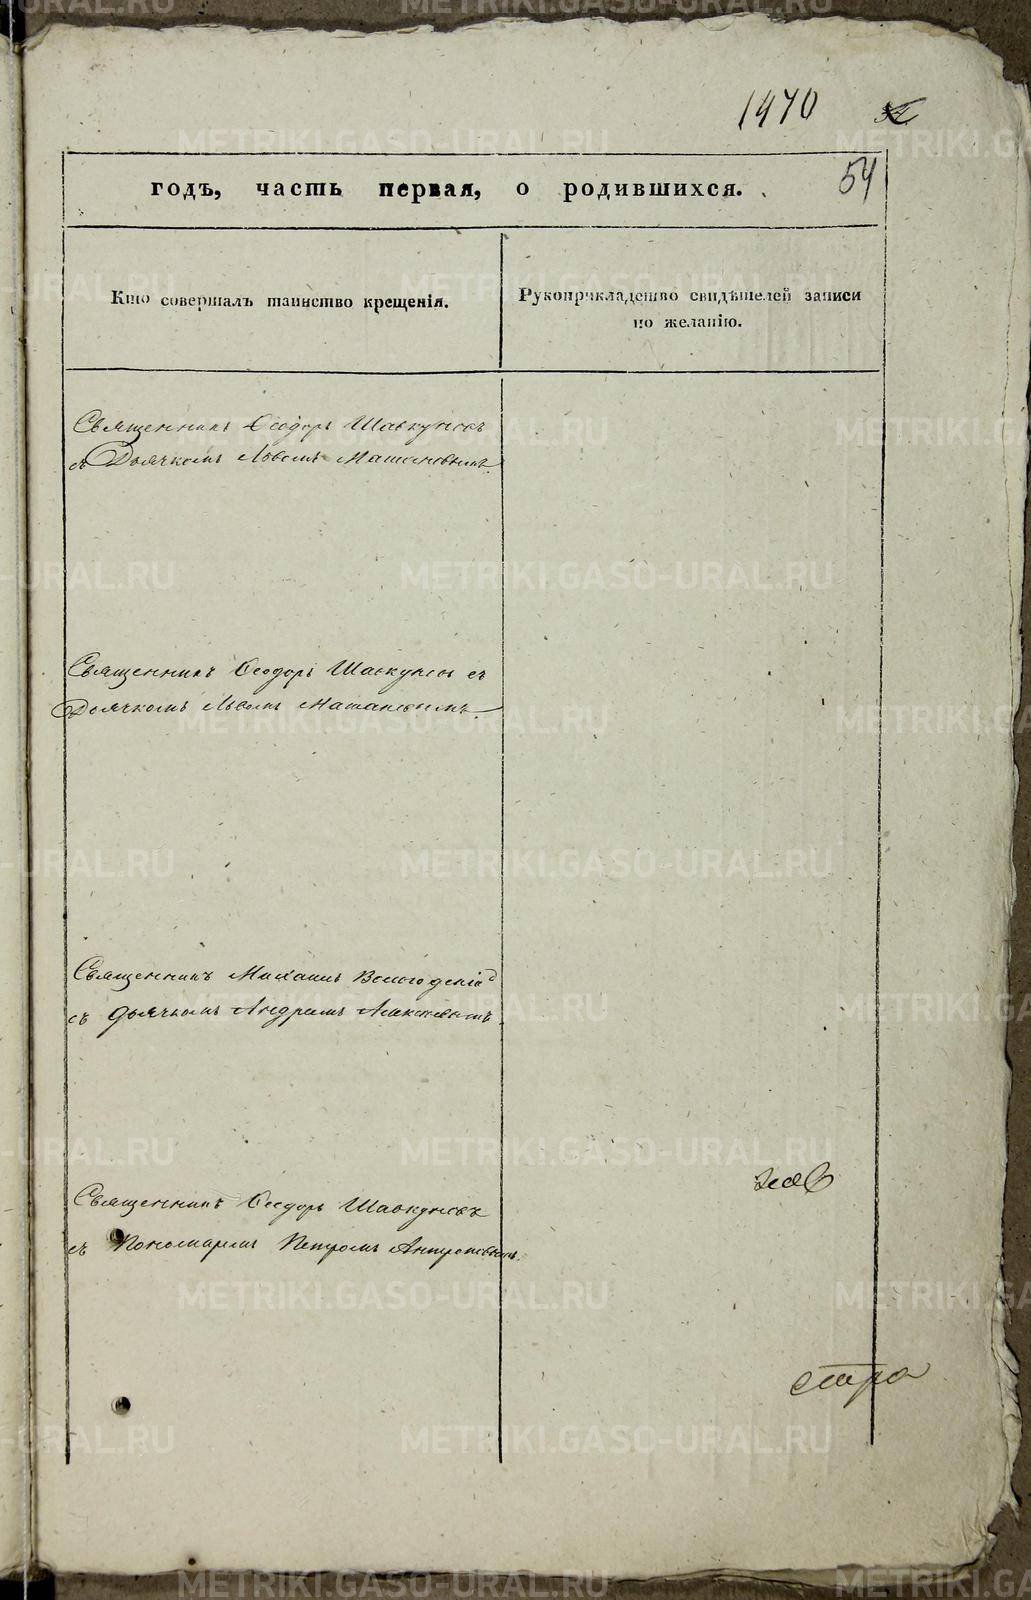 1470
54
годъ, часть первая, о родившихся.
Кто совершалъ таинство крещенія.
Рукоприкладство свидѣтелей записи
по желанію.
Священникъ Ѳеодоръ Шавкуновъ
съ Дьячкомъ Львомъ
Священникъ Ѳеодоръ Шавкуновъ съ
Дьячкомъ Львомъ
Священникъ Михаилъ Вологодскій
съ дьячкомъ Андреемъ
Священникъ Ѳеодоръ Шавкуновъ
съ Пономаремъ Петромъ Антроповымъ.
METRIKI.GASO-URAL.RU